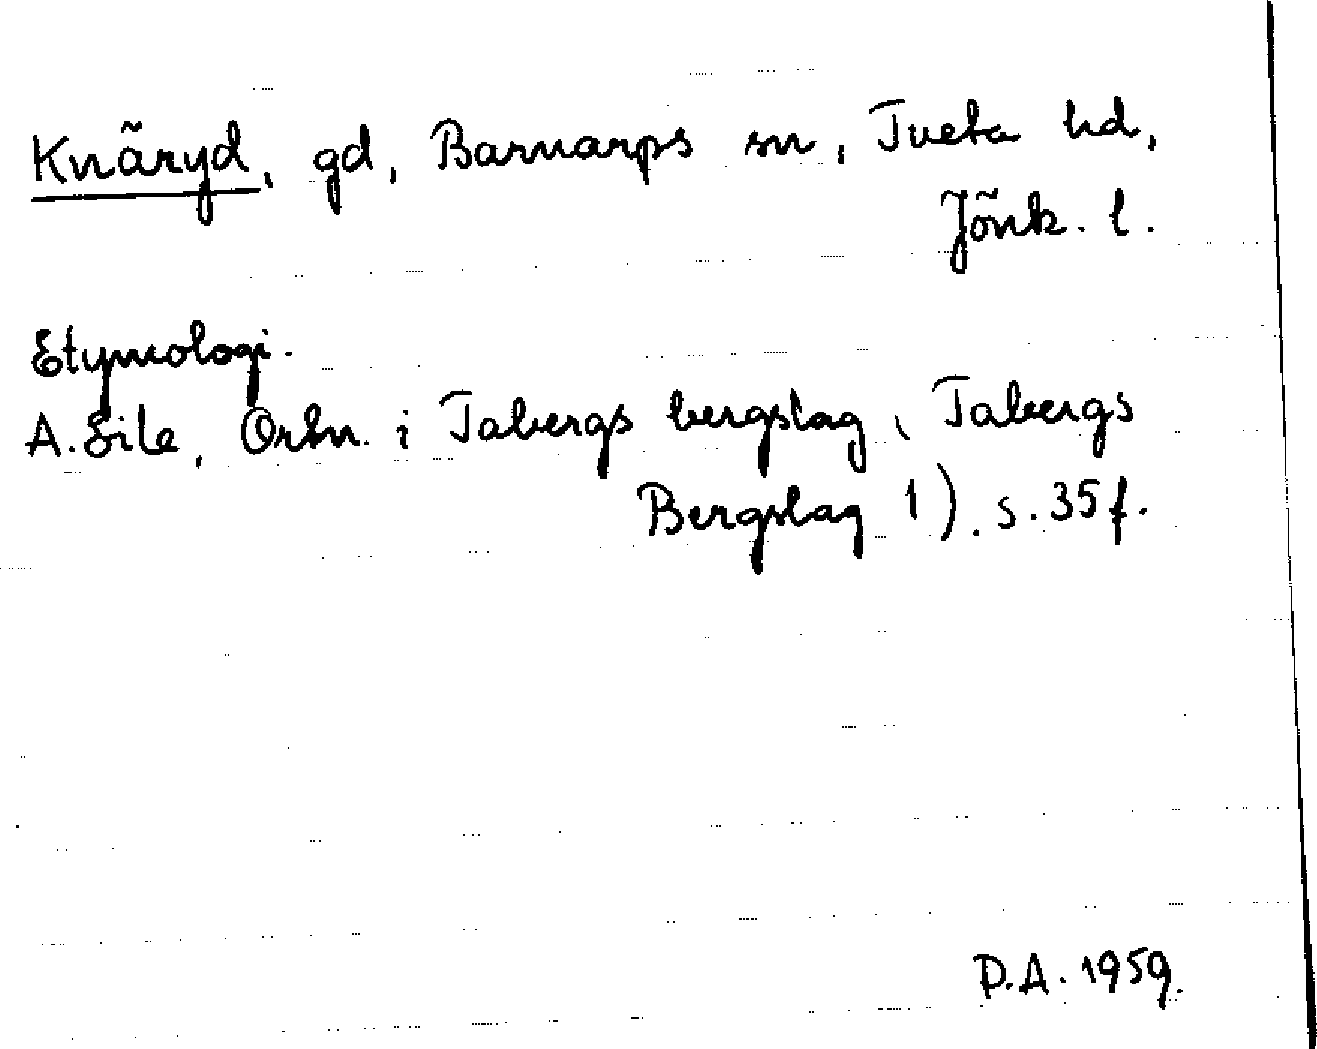 Knäryd, gd, Barnarps sn, Tveta hd,
Jönk. l.
Etymologi.
A. Sile, Ortn. i Tabergs bergslag (Tabergs
Bergslag 1). s. 35 f.
P.A. 1959.